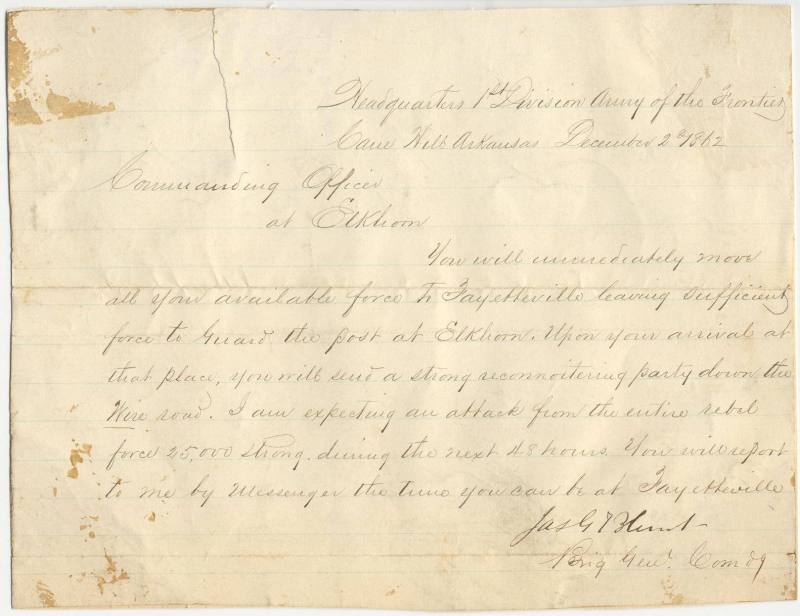 Headquarters 1st Division Army of the Frontier
Cane Hill Arkansas December 2d 1862
Commanding Officer
at Elkhorn
You will immediately move
all your available force to Fayetteville leaving sufficient
force to Guard the post at Elkhorn. Upon your arrival at
that place, you will send a strong reconnoitering party down the
Wire road. I am expecting an attack from the entire rebel
force 25,000 strong. during the next 48 hours. You will report
to me by Messenger the time you can be at Fayetteville
Jas G Blunt
Brig Genl. Comdg